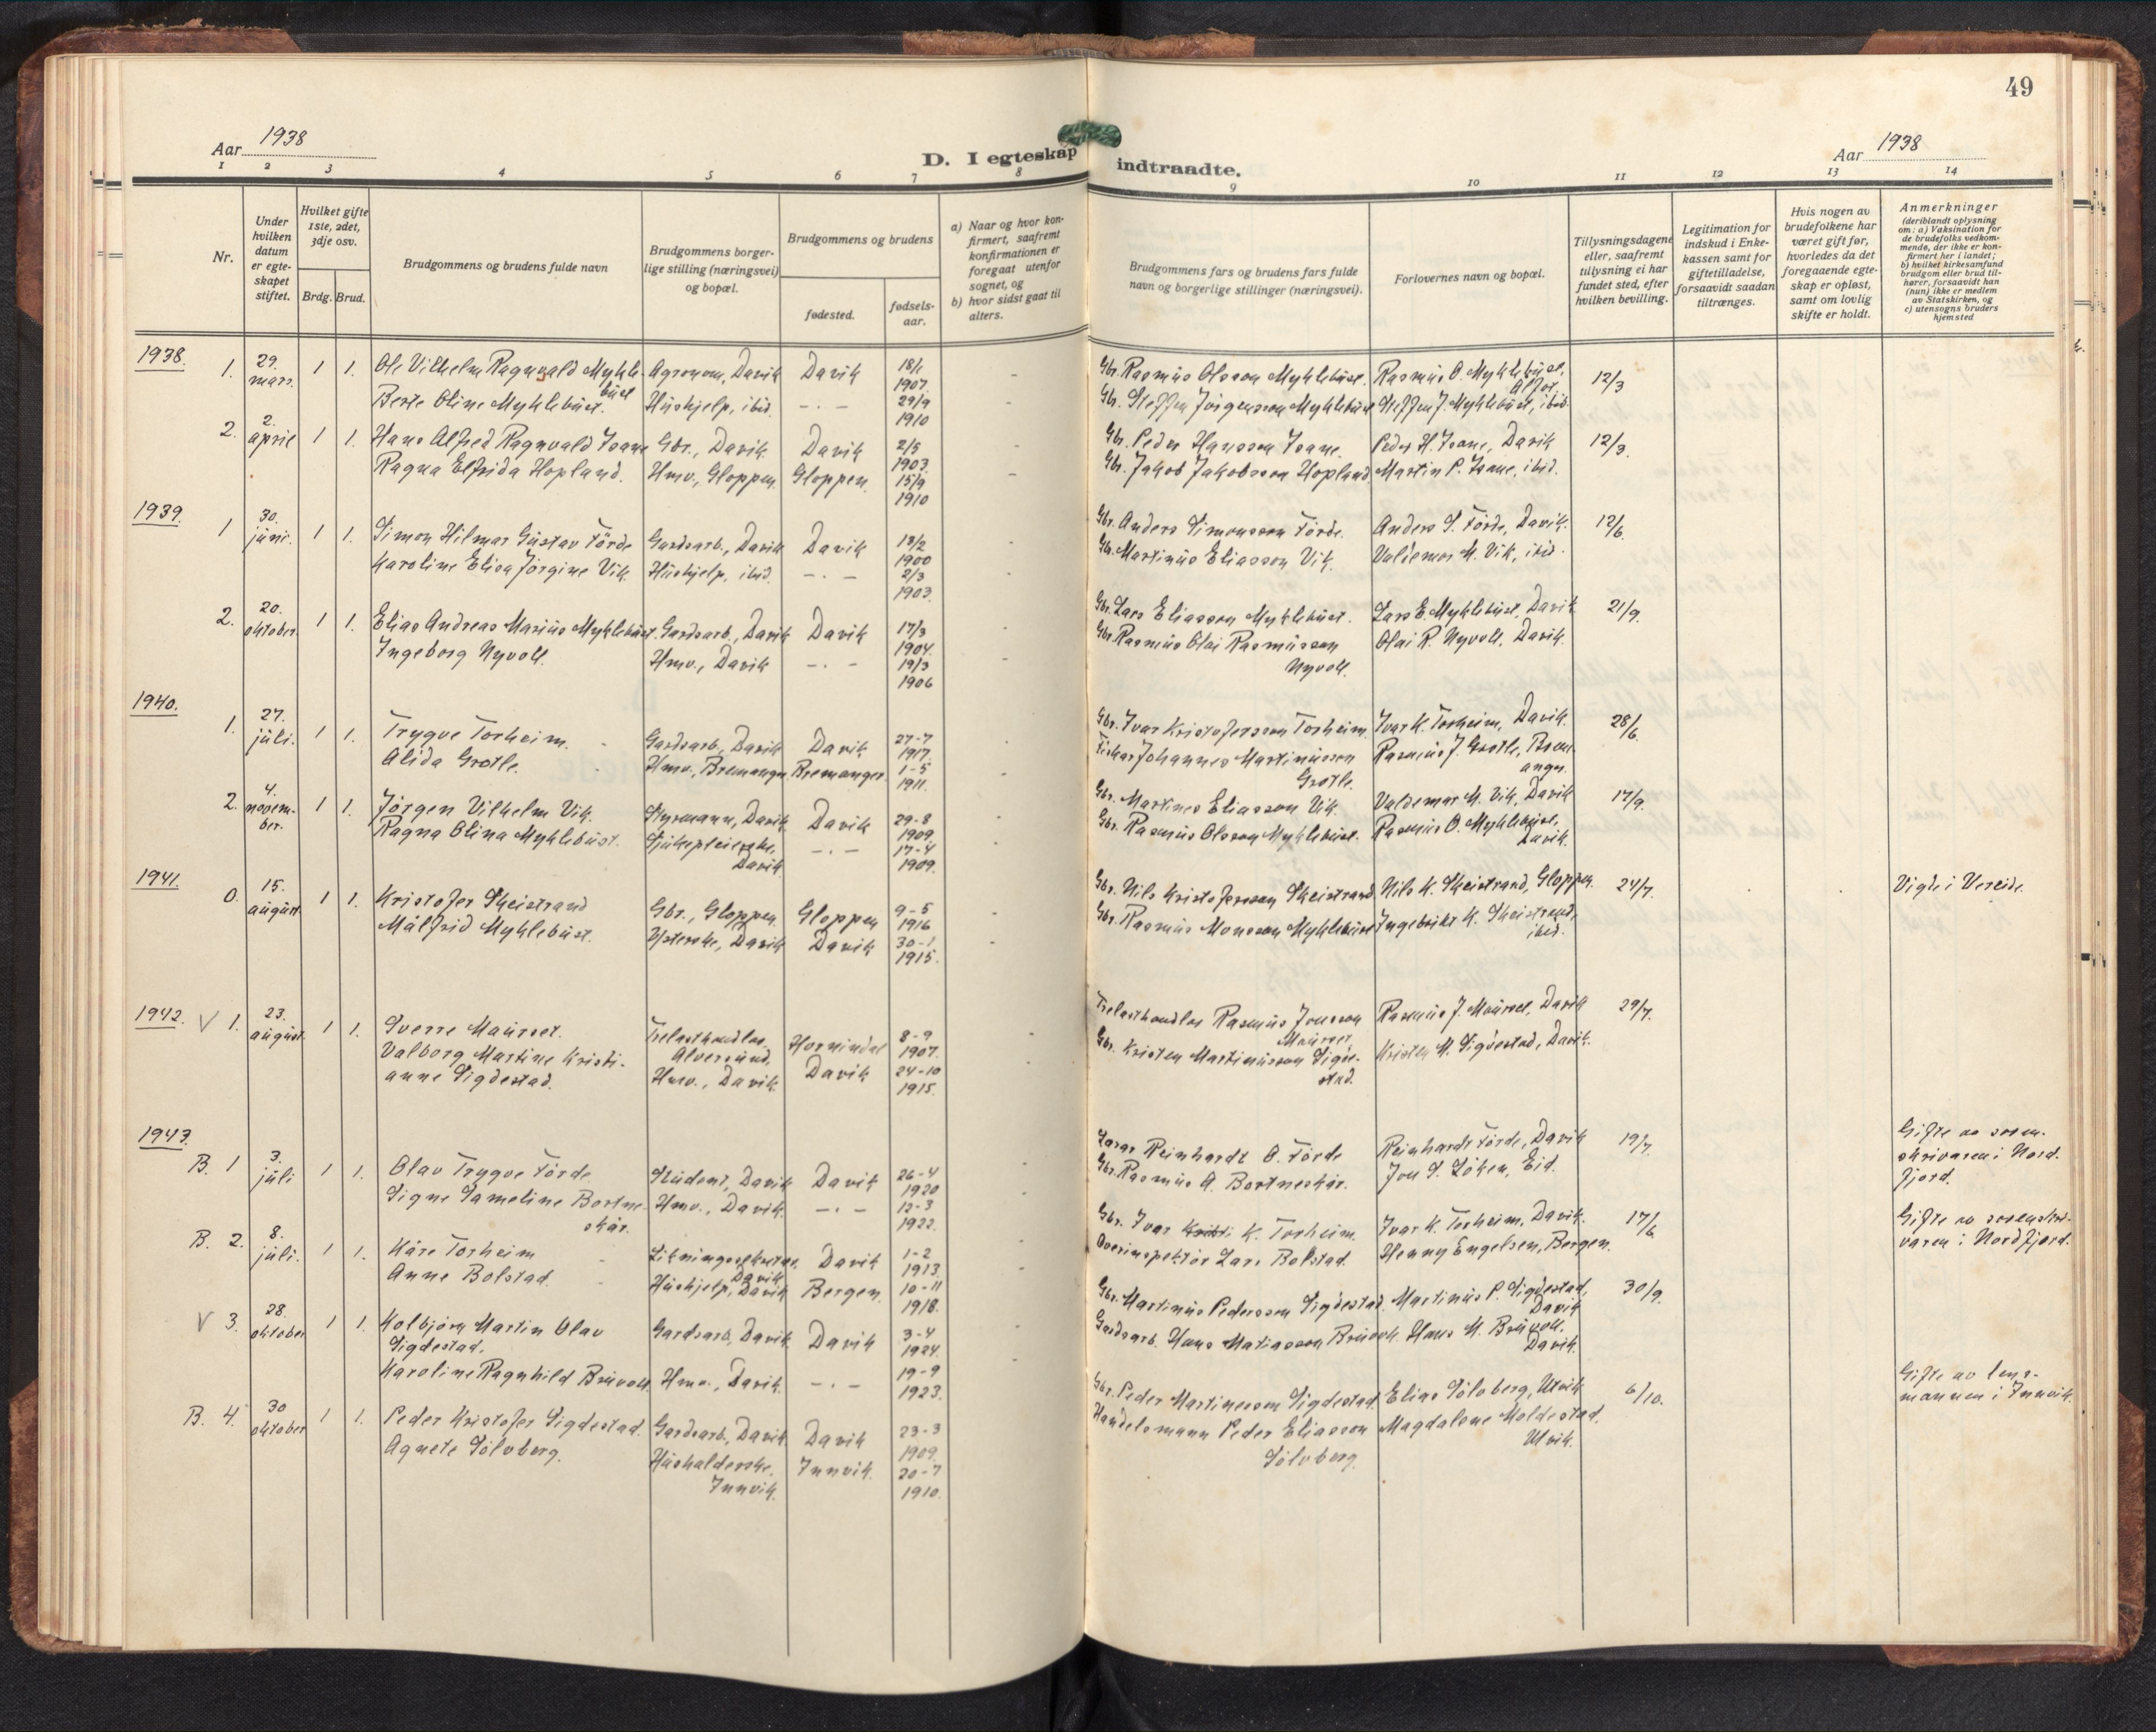 49
Aar 1938
D. I egteskap indtraadte.
Aar 1938
1 2 3 4 5 6 7 8 9 10 11 12 13 14
Nr.
Under hvilken datum er egte-skapet stiftet.
Hvilket gifte 1ste, 2det, 3dje osv.
Brdg. Brud.
Brudgommens og brudens fulde navn
Brudgommens borger-lige stilling (næringsvei) og bopæl.
Brudgommens og brudens
fødested.
fødsels-aar.
a) Naar og hvor kon-firmert, saafremt konfirmationen er foregaat utenfor sognet, og
b) hvor sidst gaat til alters.
Brudgommens fars og brudens fars fulde navn og borgerlige stillinger (næringsvei).
Forlovernes navn og bopæl.
Tillysningsdagene eller, saafremt tillysning ei har fundet sted, efter hvilken bevilling.
Legitimation for indskud i Enke-kassen samt for giftetilladelse, forsaavidt saadan tiltrænges.
Hvis nogen av brudefolkene har været gift før, hvorledes da det foregaaende egte-skap er opløst, samt om lovlig skifte er holdt.
Anmerkninger
(deriblandt oplysning om: a) Vaksination for de brudefolks vedkom-mende, der ikke er kon-firmert her i landet; b) hvilket kirkesamfund brudgom eller brud til-hører, forsaavidt han (hun) ikke er medlem av Statskirken, og c) utensogns bruders hjemsted
1938.
1. 29. mars. 1 1. Ole Vilhelm Ragnvald Myklebust Agronom, Davik Davik 18/1 1907. - Gbr. Rasmus Olsson Myklebust. Rasmus O. Myklebust, 12/3
Berte Oline Myklebust. Hushjelp, ibid. -.- 29/9 1910 - Gbr. Steffen Jørgensson Myklebust Steffen J. Myklebust, ibid.
2. 2. april 1 1. Hans Alfred Ragnvald Isane Gbr., Davik Davik 2/5 1903. - Gbr. Peder Hansson Isane. Peder H. Isane, Davik 12/3.
Ragna Elfrida Hopland. Hmv., Gloppen. Gloppen. 15/9 1910 - Gbr. Jakob Jakobsson Hopland Martin P. Isane, ibid.
1939.
1 30. juni. 1 1. Simon Hilmar Gustav Førde Gardsarb., Davik Davik 13/2 1900 - Gbr. Anders Simonsson Førde. Anders S. Førde, Davik. 12/6.
Karoline Elisa Jørgine Vik. Hushjelp, ibid. -.- 2/3 1903. - Gbr. Martinus Eliasson Vik. Valdemar M. Vik, ibid.
2. 20. oktober. 1 1. Elias Andreas Marius Myklebust. Gardsarb., Davik Davik 17/3 1904. - Gbr. Lars Eliasson Myklebust. Lars E. Myklebust, Davik 21/9.
Ingeborg Nyvoll. Hmv., Davik -.- 19/3 1906 - Gbr. Rasmus Olai Rasmusson Nyvoll. Olai R. Nyvoll, Davik.
1940.
1. 27. juli. 1 1. Trygve Torheim. Gardsarb., Davik Davik 27-7 1917. - Gbr. Ivar Kristofersson Torheim. Ivar K. Torheim, Davik. 28/6.
Alida Grotle. Hmv., Bremanger Bremanger. 1-5 1911. - Fiskar Johannes Martinusson Grotle. Rasmus J. Grotle, Bremanger.
2. 4. november. 1 1. Jørgen Vilhelm Vik. Styrmann, Davik Davik 29-8 1909. - Gbr. Martines Eliasson Vik. Valdemar M. Vik, Davik 17/9.
Ragna Olina Myklebust. Sjukepleierske, Davik. -.- 17-4 1909. - Gbr. Rasmus Olsson Myklebust. Rasmus O. Myklebust, Davik.
1941.
0. 15. august. 1 1. Kristofer Skeistrand Gbr., Gloppen. Gloppen 9-5 1916 - Gbr. Nils Kristofersson Skeistrand. Nils K. Skeistrand, Gloppen. 24/7. Vigde i Vereide.
Målfrid Myklebust. Ysterske, Davik Davik 30-1 1915. - Gbr. Rasmus Monsson Myklebust Ingebrikt K. Skeistrand, ibid.
1942.
V 1. 23. august. 1 1. Sverre Maurset. Trelasthandlar, Alversund. Hornindal 8-9 1907. - Trelasthandlar Rasmus Jonsson Maurset. Rasmus J. Maurset, Davik 29/7.
Valborg Martine Kristi-anne Sigdestad. Hmv., Davik. Davik 24-10 1915. - Gbr. Kristen Martinusson Sigde-stad. Kristen M. Sigdestad, Davik.
1943.
B. 1 3. juli 1 1. Olav Trygve Førde Student, Davik Davik 26-4 1920 - Lærar Reinhardt O. Førde Reinhardt Førde, Davik 19/7. Gifte av soren-skrivaren i Nord-fjord.
Signe Sameline Bortne-skår. Hmv., Davik. -.- 13-3 1922. - Gbr. Rasmus A. Bortneskår. Jon S. Løken, Eid.
B. 2. 8. juli. 1 1. Kåre Torheim Likningssekretær, Davik Davik 1-2 1913. - Gbr. Ivar K. Torheim. Ivar K. Torheim, Davik. 17/6 Gifte av sorenskri-varen i Nordfjord.
Anne Bolstad. Hushjelp, Davik Bergen. 10-11 1918. - Overinspektør Lars Bolstad. Henny Engelsen, Bergen.
V 3. 28. oktober 1 1. Kolbjørn Martin Olav Sigdestad. Gardsarb., Davik. Davik 3-4 1924. - Gbr. Martinus Pedersson Sigdestad. Martinus P. Sigdestad, Davik 30/9.
Karoline Ragnhild Bruvoll. Hmv., Davik. -.- 19-9 1923. - Gardsarb. Hans Matiasson Bruvoll. Hans M. Bruvoll, Davik.
B. 4. 30 oktober 1 1. Peder Kristofer Sigdestad. Gardsarb., Davik. Davik 23-3 1909. - Gbr. Peder Martinusson Sigdestad. Elias Sølvberg, Utvik 6/10. Gifte av lens-mannen i Innvik.
Agnete Sølvberg. Hushalderske, Innvik. Innvik. 20-7 1910. - Handelsmann Peder Eliasson Sølvberg. Magdalene Moldestad, Utvik.